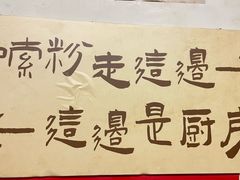 嗦粉走這邊
這邊是厨房